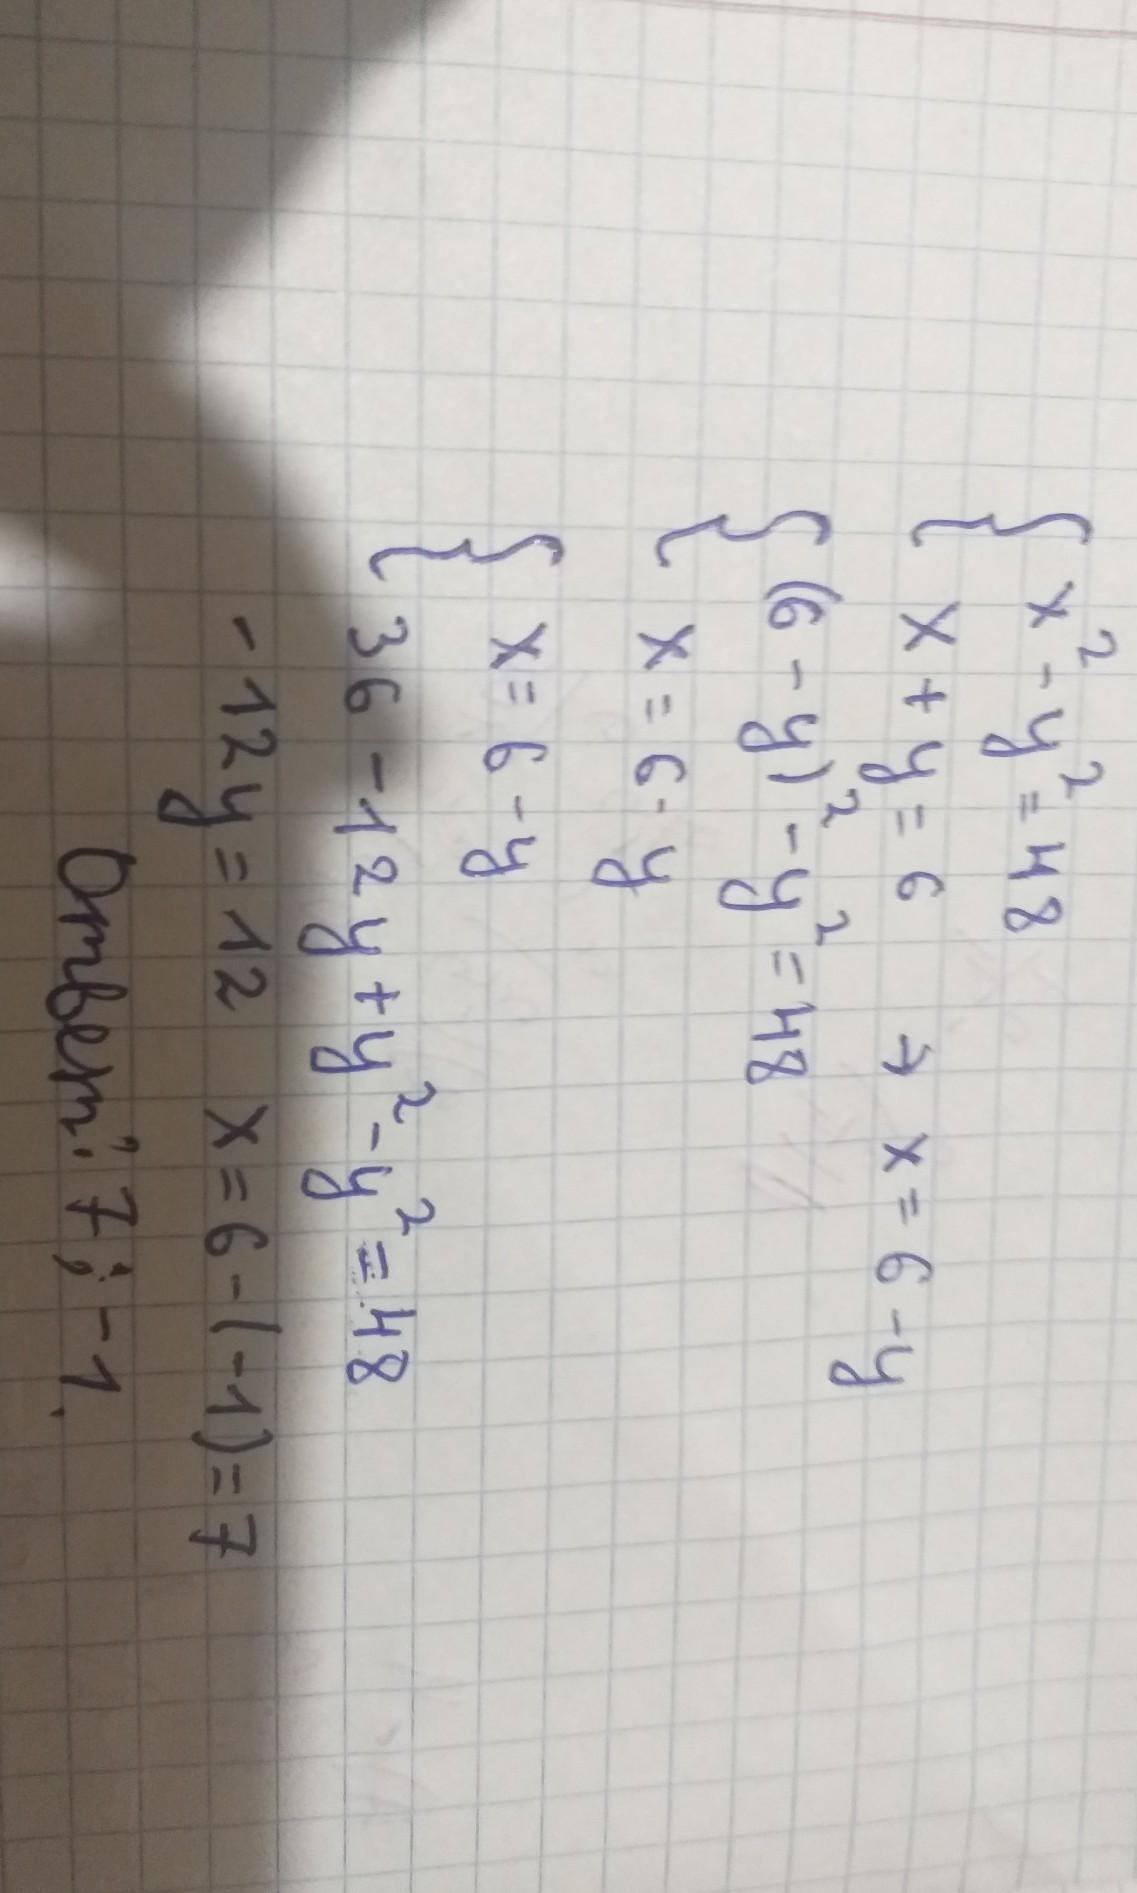 x² - y² = 48
x + y = 6 → x = 6 - y
(6 - y)² - y² = 48
x = 6 - y
x = 6 - y
36 - 12y + y² - y² = 48
-12y = 12 x = 6 - (-1) = 7
Ответ: 7; -1.